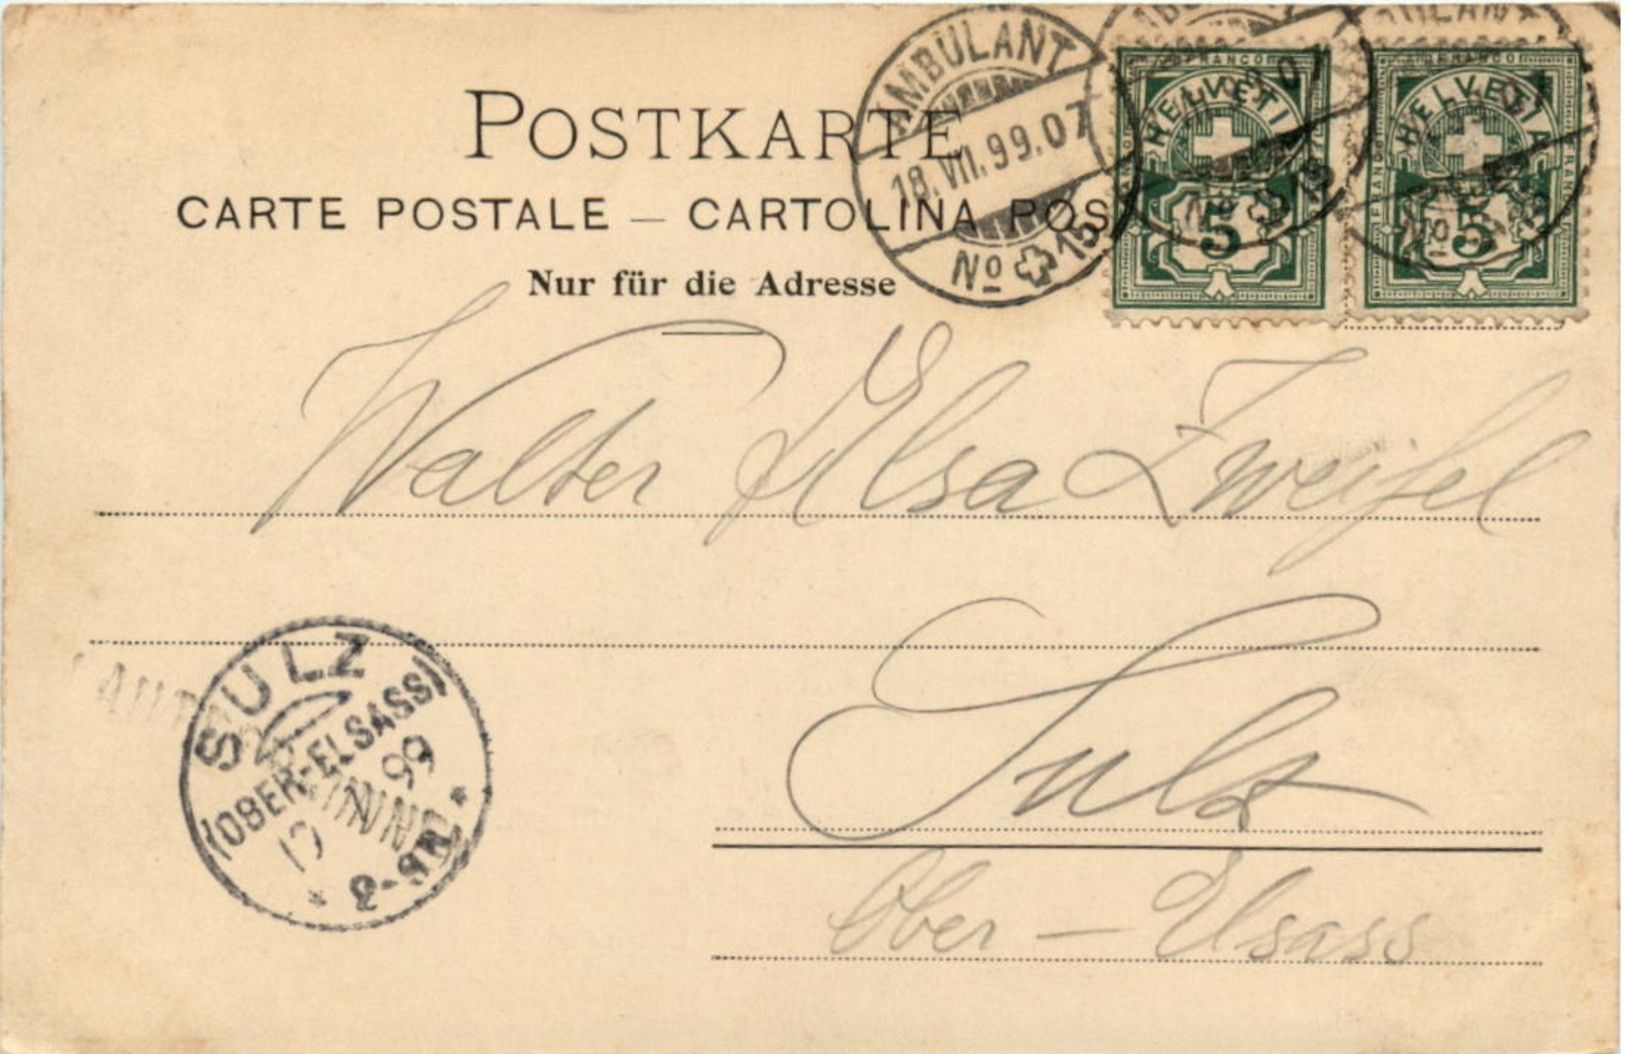 POSTKARTE
CARTE POSTALE – CARTOLINA POS
Nur für die Adresse
AMBULANT
18.VII.99.07
No 15
FRANCO
HELVETIA
5
No 15
FRANCO
HELVETIA
5
No
Walter Elsa Zweifel
Sulz
Ober – Elsass
SULZ
(OBER-ELSASS)
99
8-9N